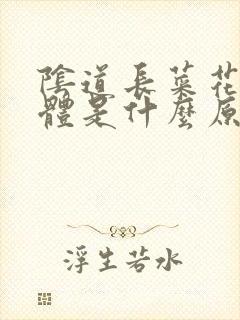 陰道長菜花
體是什麼原
浮生若水